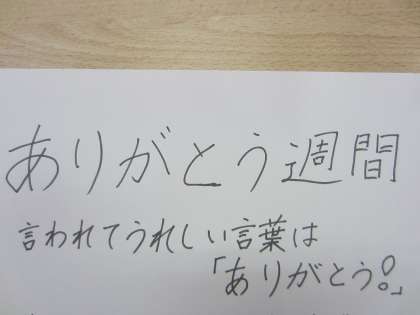 ありがとう週間
言われてうれしい言葉は
「ありがとう!」